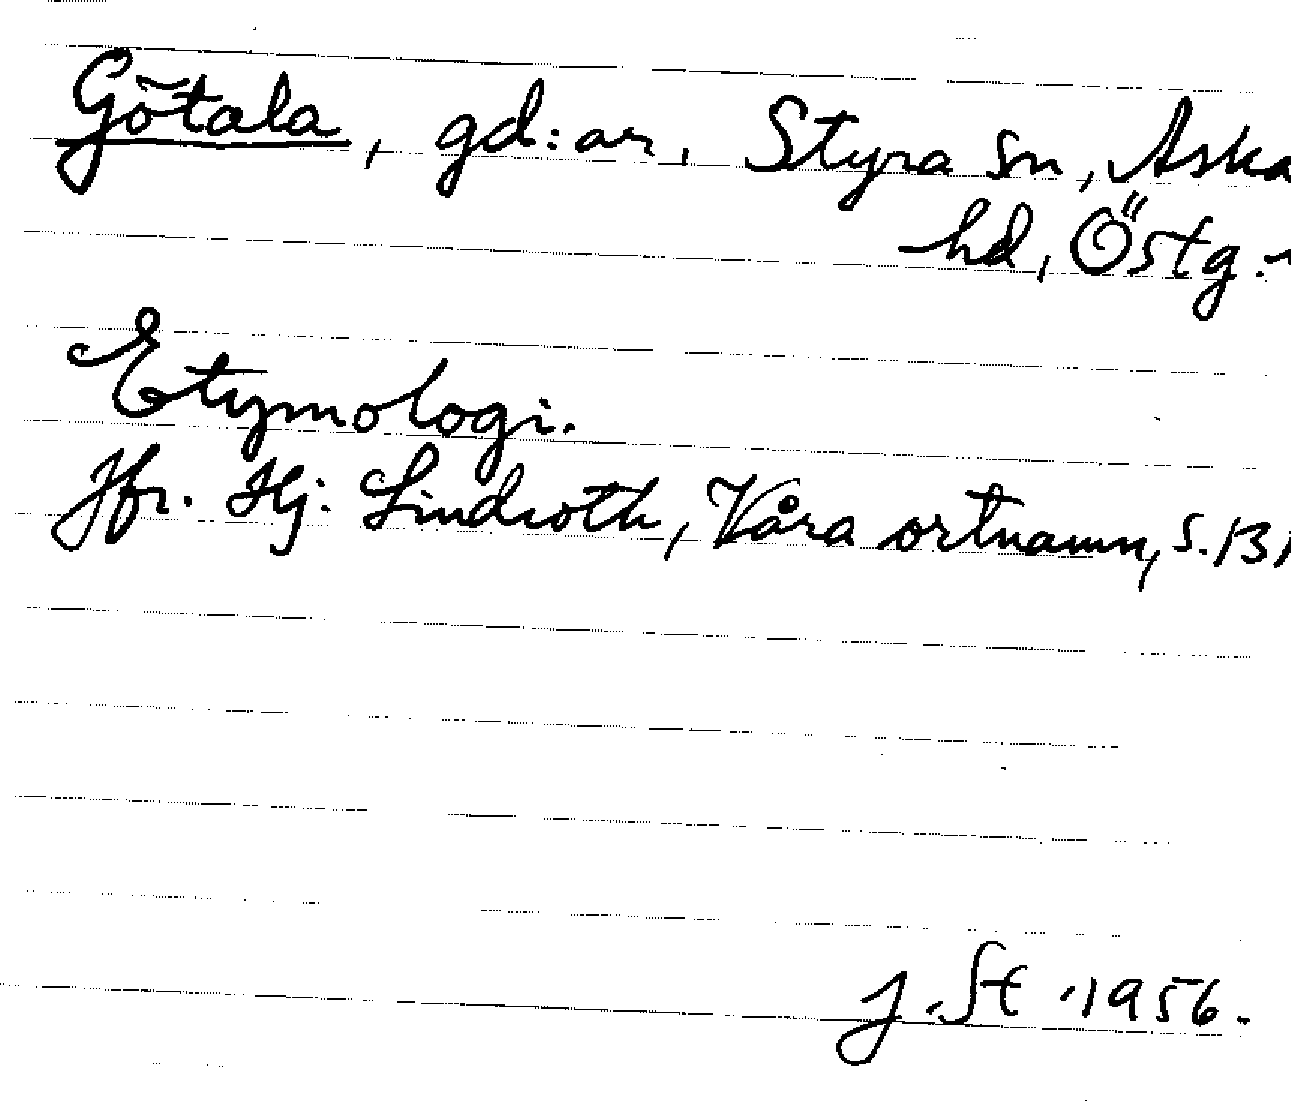 Götala, gd:ar, Styra sn, Aska
hd, Östg.
Etymologi.
Jfr. Hj. Lindroth, Våra ortnamn, s. 131
J. St. 1956.